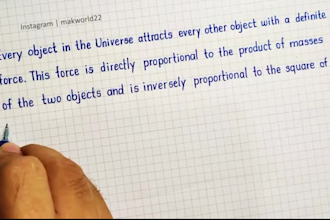 Instagram | makworld22
Every object in the Universe attracts every other object with a definite
force. This force is directly proportional to the product of masses
of the two objects and is inversely proportional to the square of